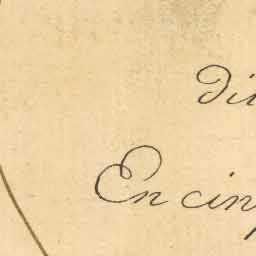 Di
En cin